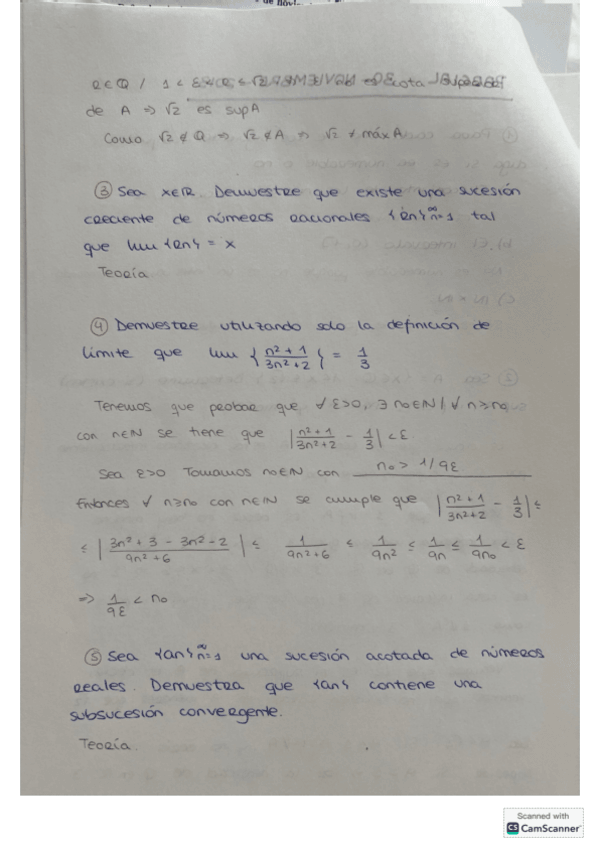 de A ⇒ √2 es sup A
Como √2 ∉ Q ⇒ √2 ∉ A ⇒ √2 ≠ máx A
③ Sea x∈R. Demuestre que existe una sucesión
creciente de números racionales {an}∞n=1 tal
que lim {an} = x
Teoría
④ Demuestre utilizando solo la definición de
límite que lim { (n²+1)/(3n²+2) } = 1/3
Tenemos que probar que ∀ ε>0, ∃ n₀∈N / ∀ n≥n₀
con n∈N se tiene que |(n²+1)/(3n²+2) - 1/3| < ε
Sea ε>0 Tomamos n₀∈N con n₀ > 1/9ε
Entonces ∀ n≥n₀ con n∈N se cumple que |(n²+1)/(3n²+2) - 1/3| ≤
≤ |(3n²+3-3n²-2)/(9n²+6)| ≤ 1/(9n²+6) ≤ 1/9n² ≤ 1/9n ≤ 1/9n₀ < ε
⇒ 1/9ε < n₀
⑤ Sea {an}∞n=1 una sucesión acotada de números
reales. Demuestra que {an} contiene una
subsucesión convergente.
Teoría.
Scanned with
CS CamScanner